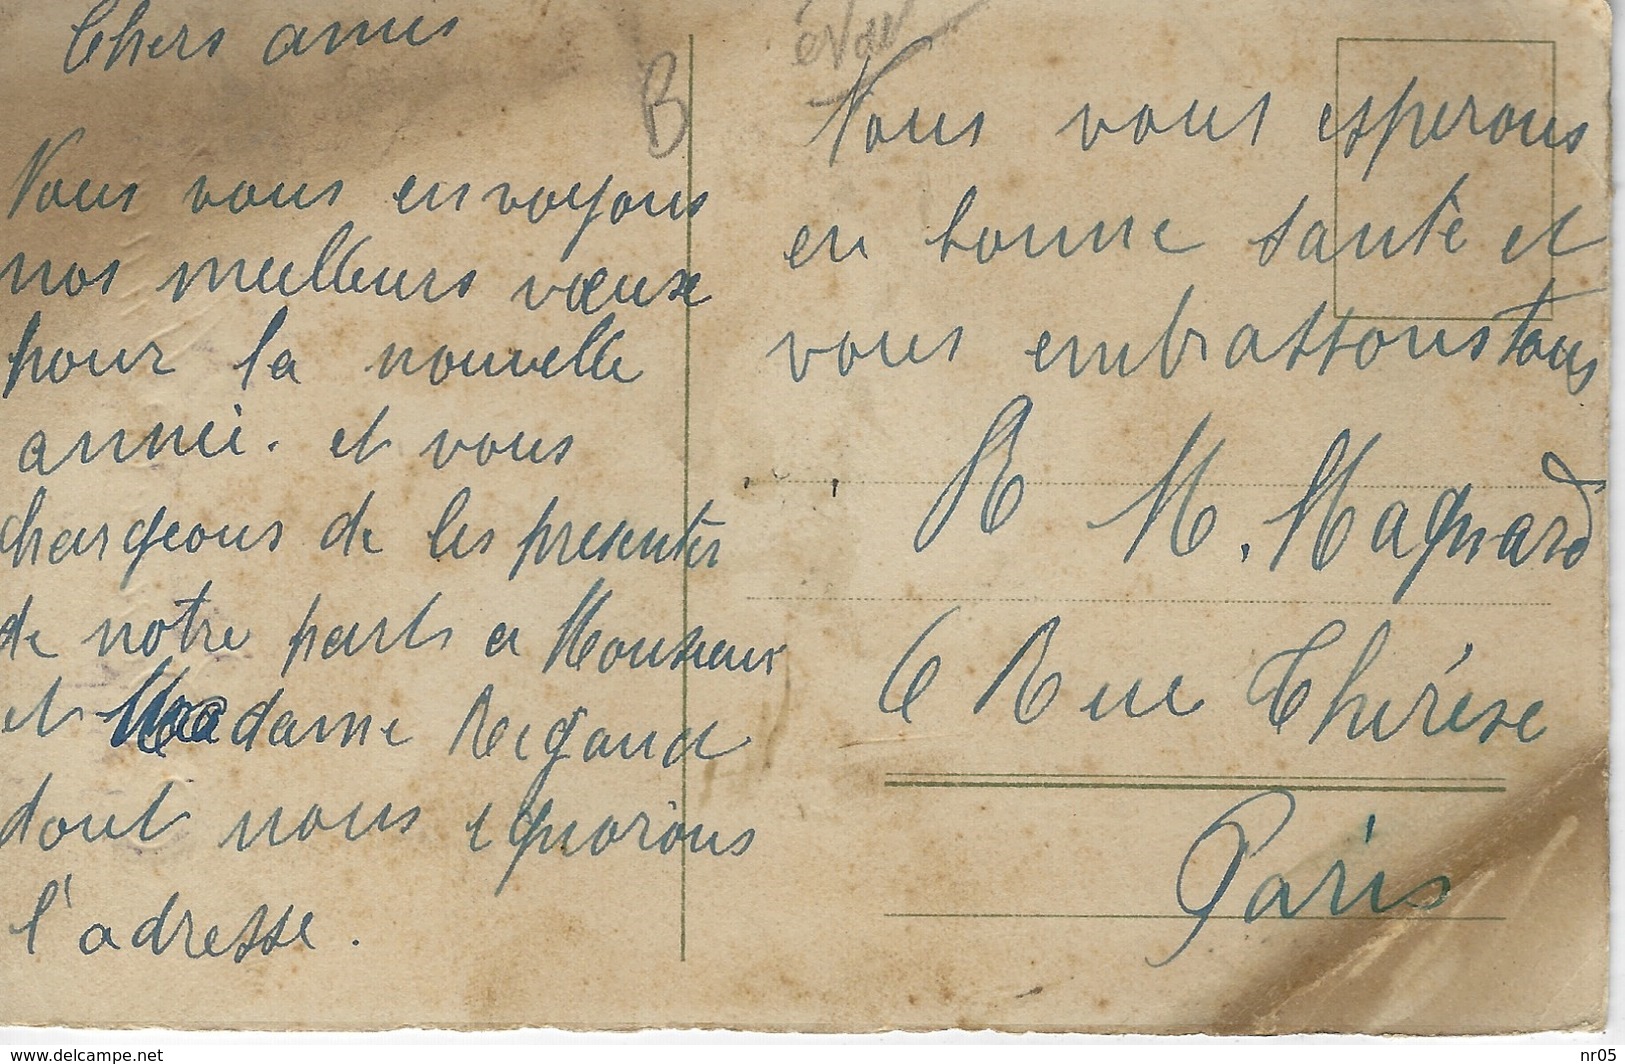 Chers amis
Nous vous envoyons
nos meilleurs vœux
pour la nouvelle
année. et vous
chargeons de les presenter
de notre part à Monsieur
et Madame Rigaud
dont nous ignorons
l'adresse.
B
Nous vous esperons
en bonne santé et
vous embrassons tous
R M. Magnard
6 Rue Thérèse
Paris
www.delcampe.net
nr05